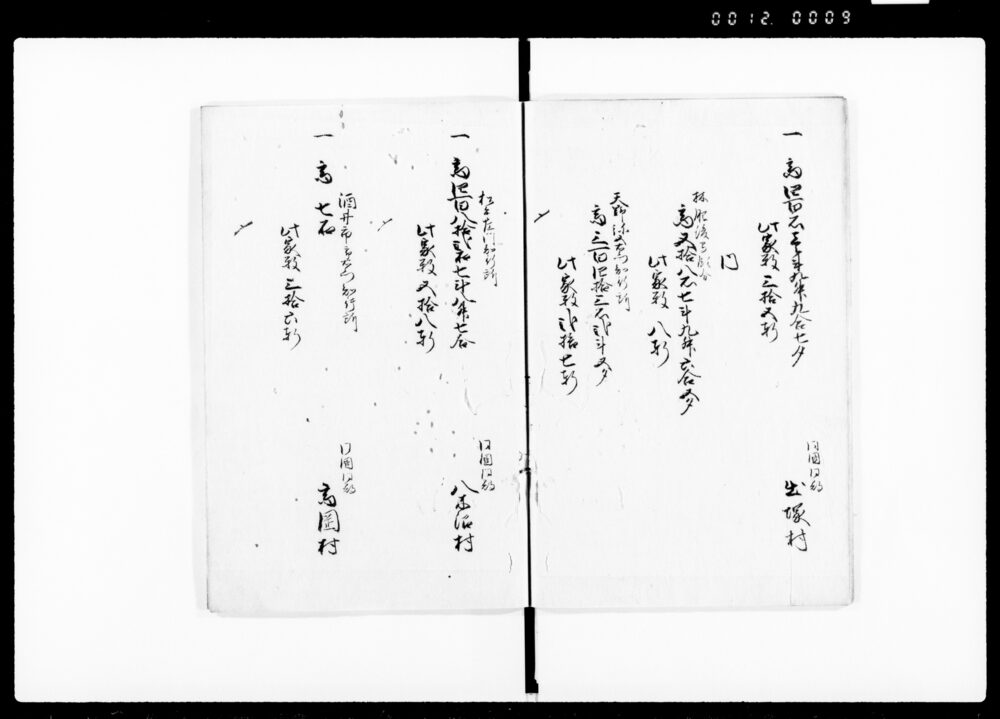 0012. 0009
同国同郡
一 高四百石壱斗九升九合七夕 出塚村
此家数三拾五軒
内
林肥後守領分
高五拾八石七斗九升六合五夕
此家数八軒
知行所
高三百四拾三石弐斗五夕
此家数弐拾七軒
知行所 同国同郡
一 高四百八拾弐石七斗八升七合 八木沼村
此家数五拾八軒
酒井市右衛門知行所 同国同郡
一 高七石 高岡村
此家数三拾六軒